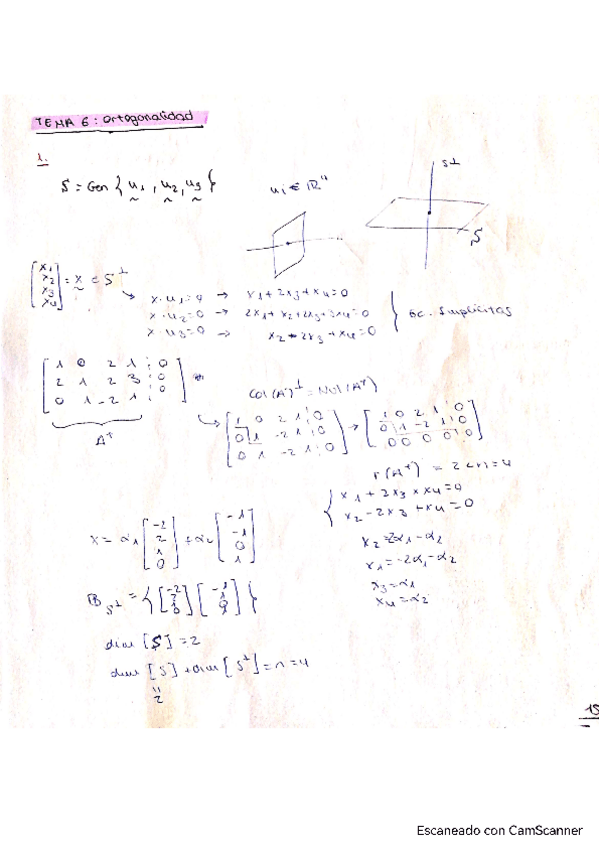 TEMA 6: Ortogonalidad
1.
S = Gen { u1, u2, u3 }
ui ∈ ℝ⁴
S⊥
S
[x1 x2 x3 x4] = x ∈ S⊥
x · u1 = 0 → x1 + 2x3 + x4 = 0
x · u2 = 0 → 2x1 + x2 + 2x3 + 3x4 = 0
x · u3 = 0 → x2 - 2x3 + x4 = 0
Ec. Implícitas
[1 0 2 1 | 0
2 1 2 3 | 0
0 1 -2 1 | 0]
Aᵀ
Col(A)⊥ = Nul(Aᵀ)
[1 0 2 1 | 0
0 1 -2 1 | 0
0 1 -2 1 | 0]
→ [1 0 2 1 | 0
0 1 -2 1 | 0
0 0 0 0 | 0]
r(Aᵀ) = 2 < n = 4
x1 + 2x3 + x4 = 0
x2 - 2x3 + x4 = 0
x2 = 2α1 - α2
x1 = -2α1 - α2
x3 = α1
x4 = α2
x = α1 [-2 2 1 0] + α2 [-1 -1 0 1]
B S⊥ =
dim [S] = 2
dim [S] + dim [S⊥] = n = 4
2
15
Escaneado con CamScanner